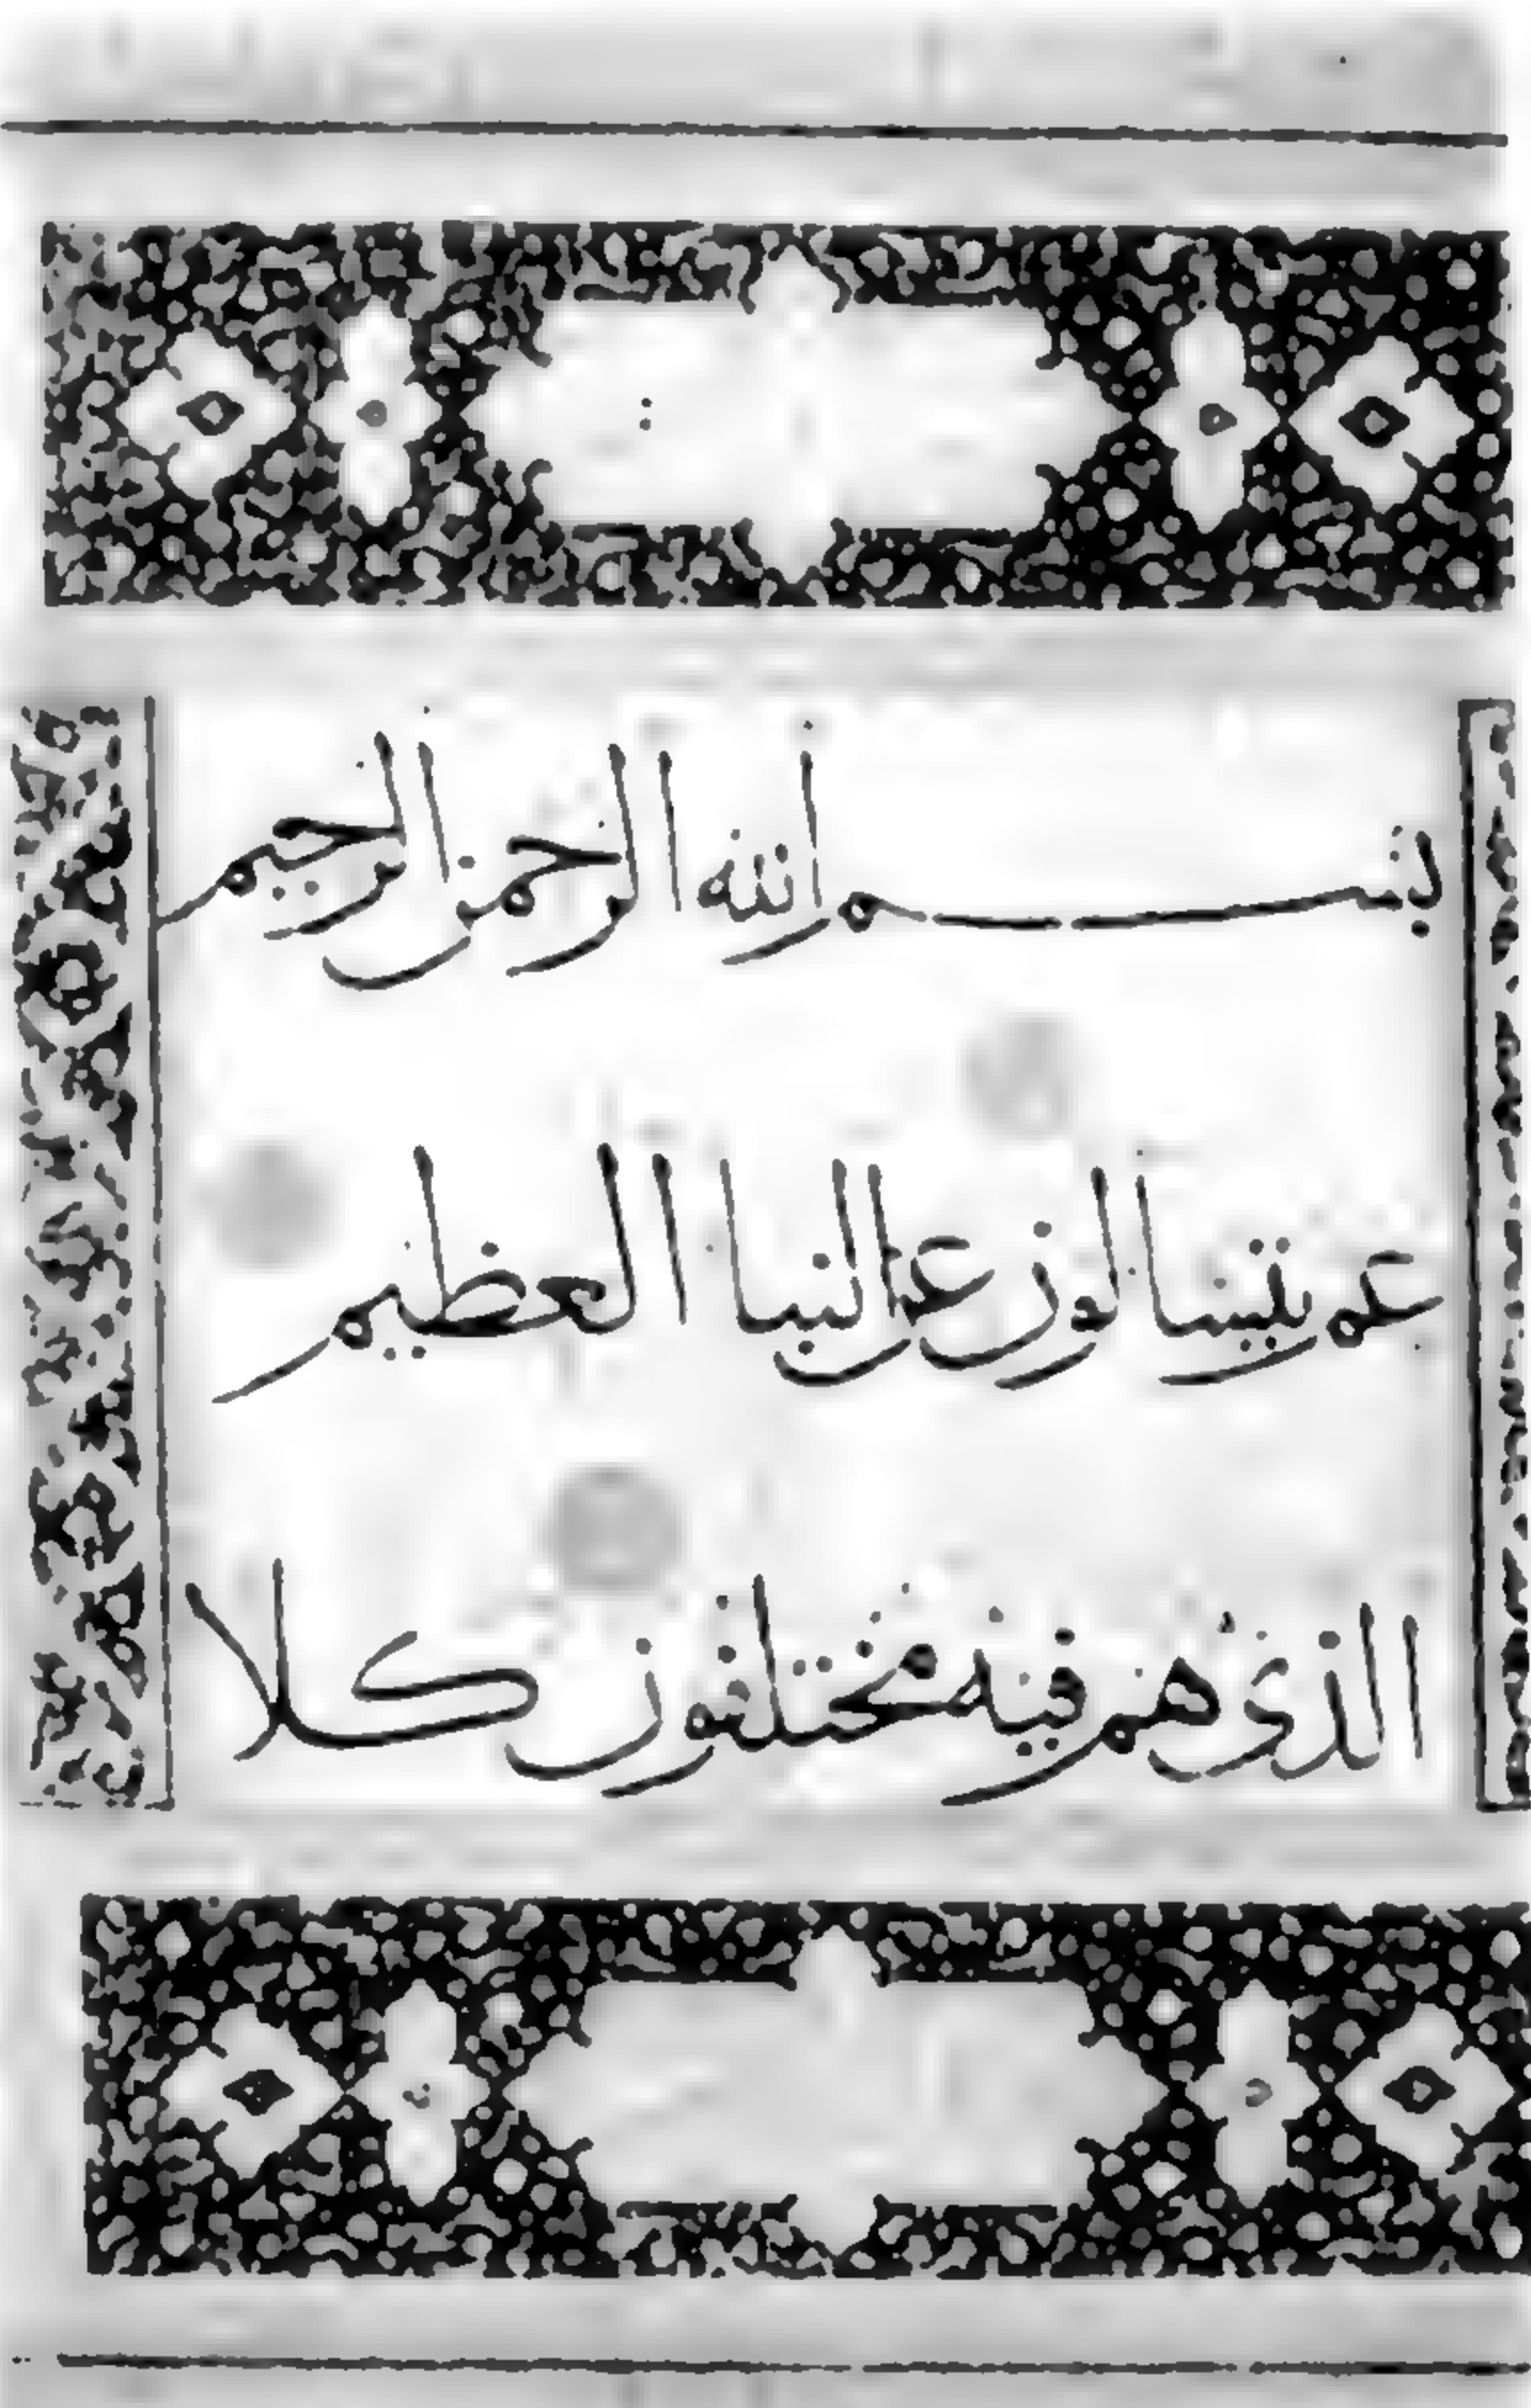 بسم الله الرحمن الرحيم
عم يتسالون عن النبا العظيم
الذي هم فيه مختلفون كلا